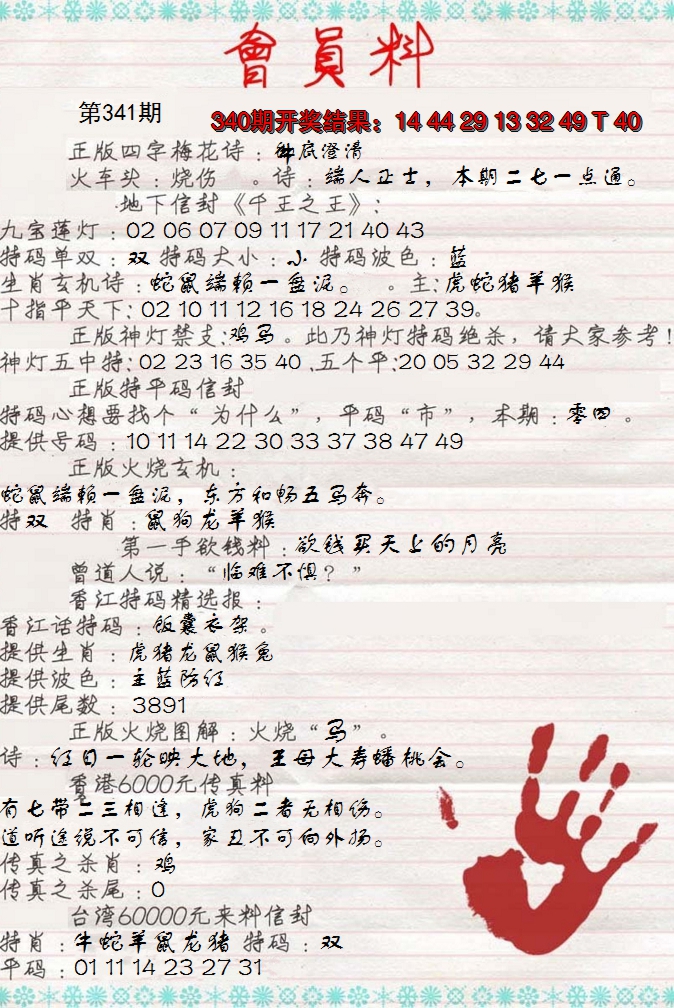 會員料
第341期
340期开奖结果：14 44 29 13 32 49 T 40
正版四字梅花诗：钟底澄清
火车头：烧伤 。诗：端人正士，本期二七一点通。
地下信封《千王之王》：
九宝莲灯：02 06 07 09 11 17 21 40 43
特码单双：双 特码大小：小 特码波色：蓝
生肖玄机诗：蛇鼠端赖一盘泥。 。主：虎蛇猪羊猴
十指平天下：02 10 11 12 16 18 24 26 27 39。
正版神灯禁支：鸡马。此乃神灯特码绝杀，请大家参考！
神灯五中特：02 23 16 35 40 .五个平：20 05 32 29 44
正版特平码信封
特码心想要找个“为什么”，平码“市”，本期：零四。
提供号码：10 11 14 22 30 33 37 38 47 49
正版火烧玄机：
蛇鼠端赖一盘泥，东方和畅五马奔。
特双 特肖：鼠狗龙羊猴
第一手欲钱料：欲钱买天上的月亮
曾道人说：“临难不惧？”
香江特码精选报：
香江话特码：饭囊衣架。
提供生肖：虎猪龙鼠猴兔
提供波色：主蓝防红
提供尾数：3891
正版火烧图解：火烧“马”。
诗：红日一轮映大地，王母大寿蟠桃会。
香港6000元传真料
有七带二三相逢，虎狗二者无相伤。
道听途说不可信，家丑不可向外扬。
传真之杀肖：鸡
传真之杀尾：0
台湾60000元来料信封
特肖：牛蛇羊鼠龙猪 特码：双
平码：01 11 14 23 27 31